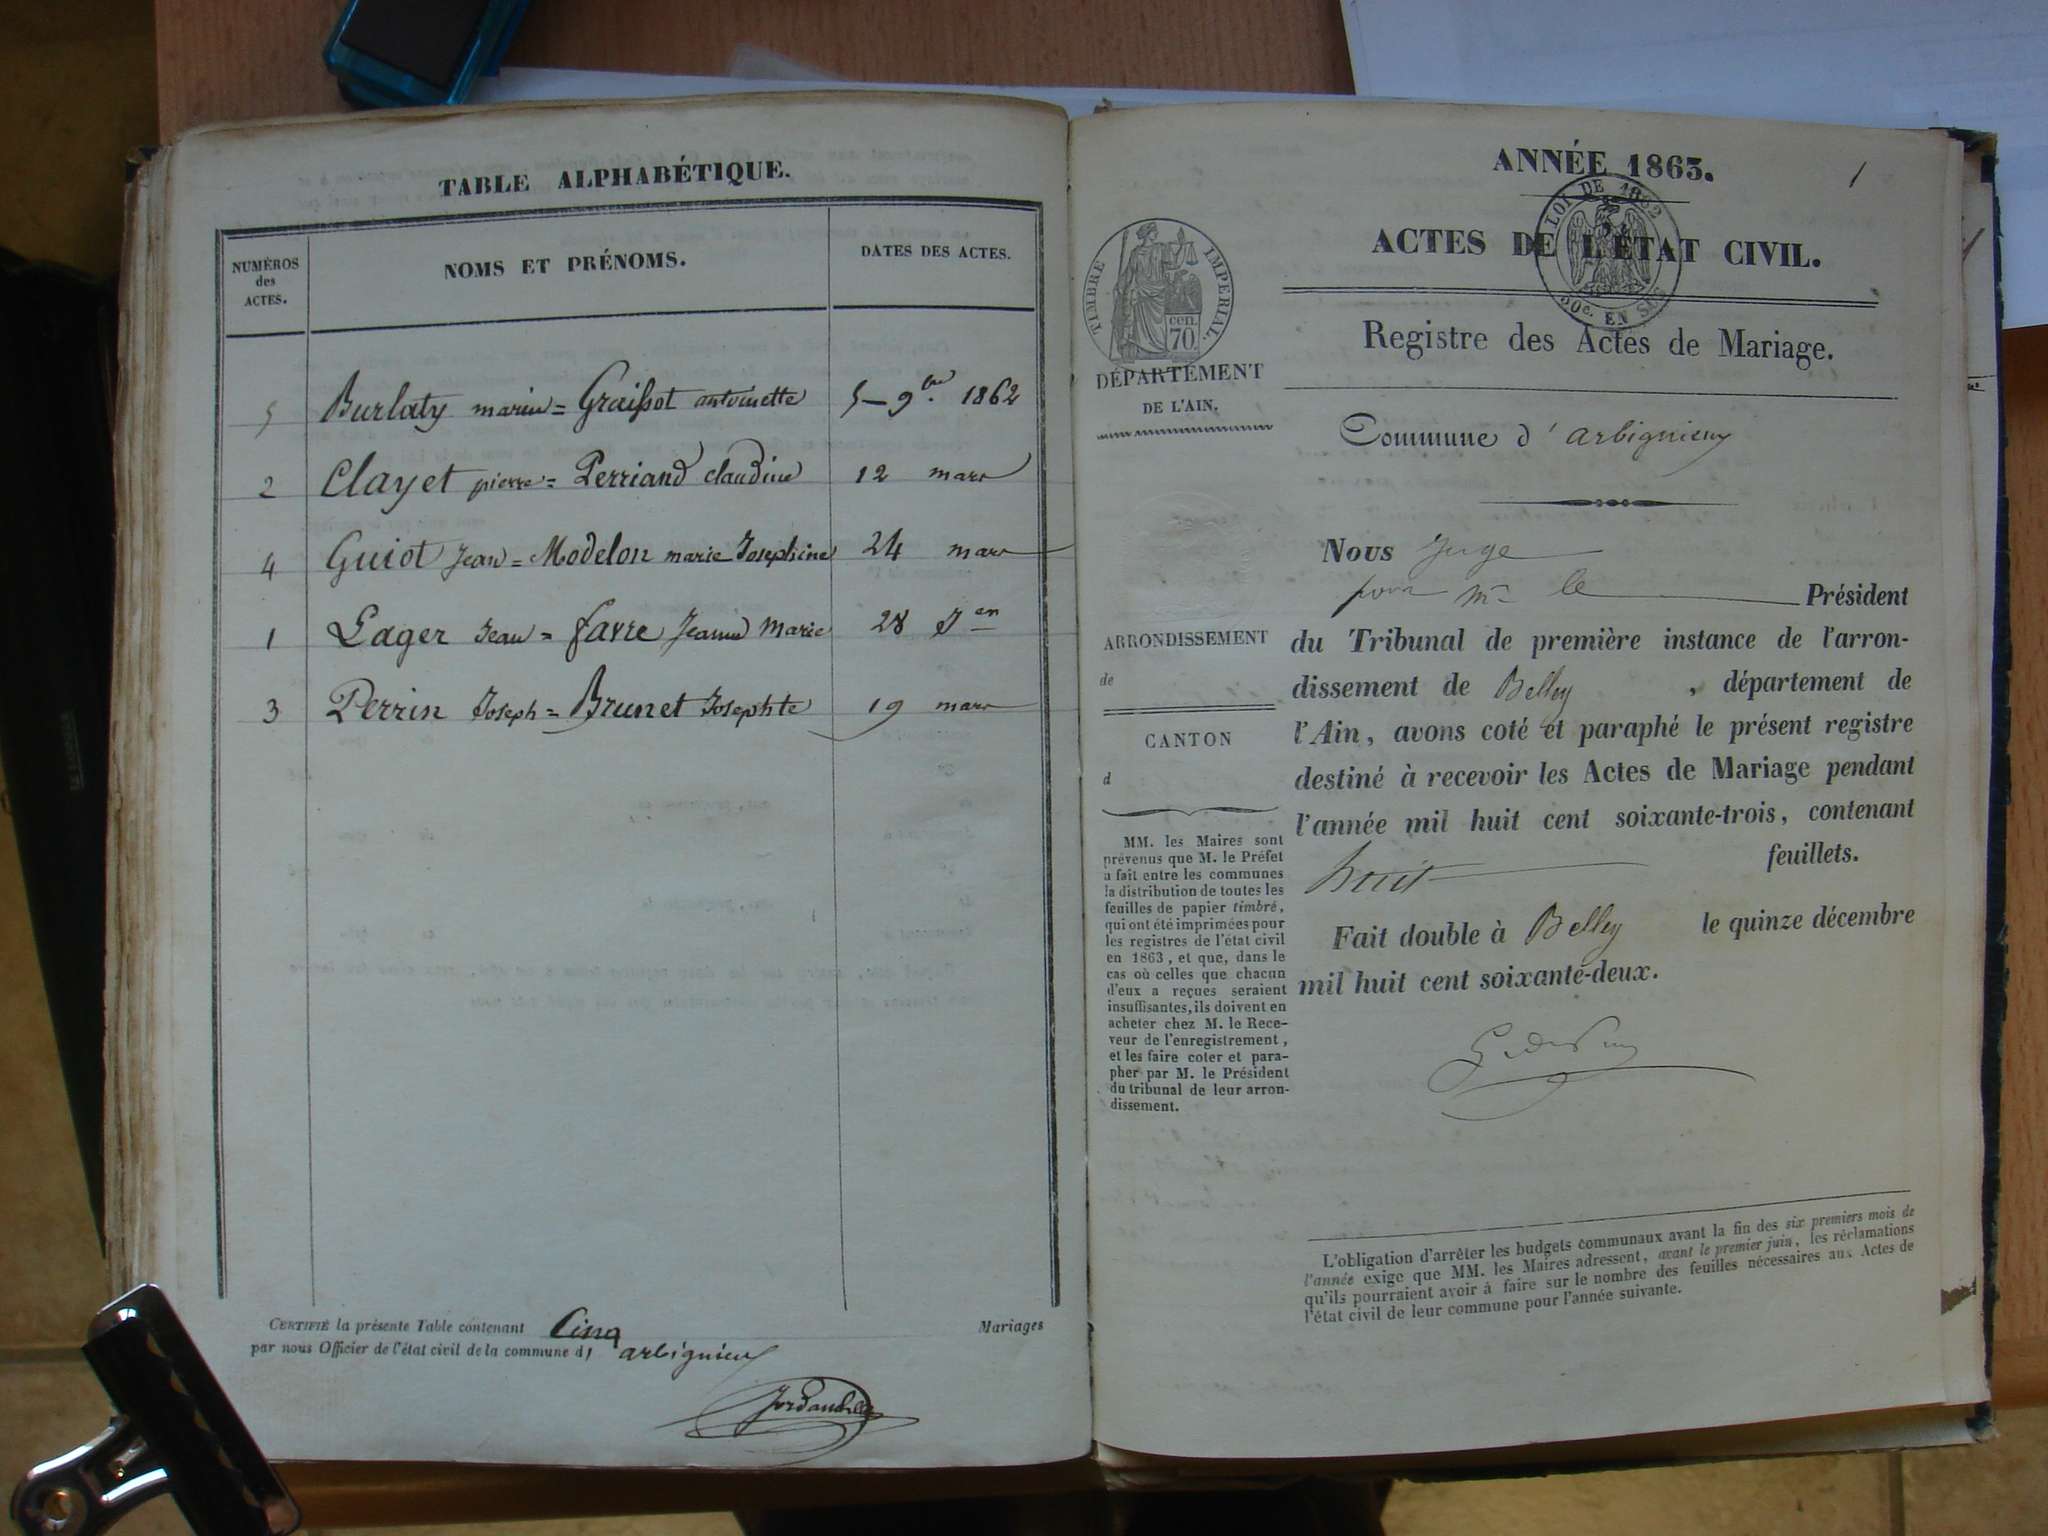 TABLE ALPHABÉTIQUE.
NUMÉROS des ACTES.
NOMS ET PRÉNOMS.
DATES DES ACTES.
5 Burlaty marin = Graissot antoinette 5 - 9bre 1862
2 Clayet pierre = Perriand claudine 12 mars
4 Guiot Jean = Modelon marie Josephine 24 mars
1 Lager Jean = favre Jeanne Marie 28 Jen
3 Perrin Joseph = Brunet Josephte 19 mars
CERTIFIÉ la présente Table contenant Cinq Mariages
par nous Officier de l'état civil de la commune d' arbignieu
ANNÉE 1863.
1
LOI DE 1862
50c. EN SUS
ACTES DE L'ÉTAT CIVIL.
Registre des Actes de Mariage.
TIMBRE IMPERIAL.
cen. 70
DÉPARTEMENT
DE L'AIN.
Commune d' arbignieu
Nous Juge
pour Mr le Président
du Tribunal de première instance de l'arron-
dissement de Belley, département de
l'Ain, avons coté et paraphé le présent registre
destiné à recevoir les Actes de Mariage pendant
l'année mil huit cent soixante-trois, contenant
huit feuillets.
Fait double à Belley le quinze décembre
mil huit cent soixante-deux.
ARRONDISSEMENT
de
CANTON
d
MM. les Maires sont
prévenus que M. le Préfet
a fait entre les communes
la distribution de toutes les
feuilles de papier timbré,
qui ont été imprimées pour
les registres de l'état civil
en 1863, et que, dans le
cas où celles que chacun
d'eux a reçues seraient
insuffisantes, ils doivent en
acheter chez M. le Rece-
veur de l'enregistrement,
et les faire coter et para-
pher par M. le Président
du tribunal de leur arron-
dissement.
L'obligation d'arrêter les budgets communaux avant la fin des six premiers mois de
l'année exige que MM. les Maires adressent, avant le premier juin, les réclamations
qu'ils pourraient avoir à faire sur le nombre des feuilles nécessaires aux Actes de
l'état civil de leur commune pour l'année suivante.